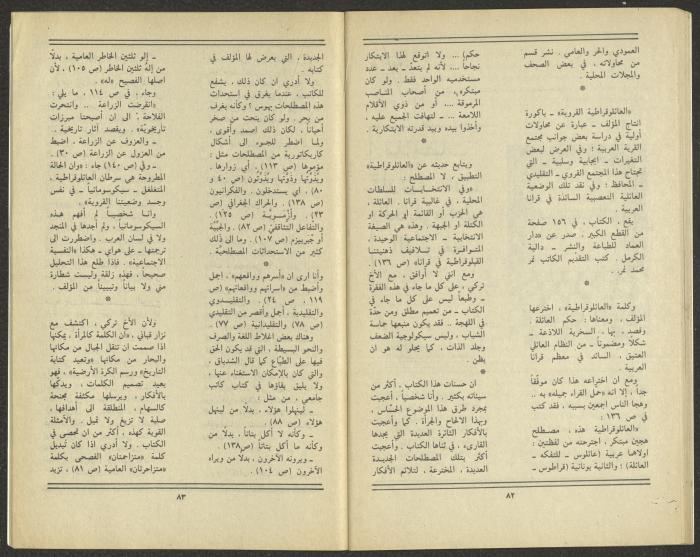 العمودي والحر والعامي . نشر قسم
من محاولاته ، في بعض الصحف
والمجلات المحلية .
*
«العائلوقراطية القروية» ـ باكورة
انتاج المؤلف ـ عبارة عن محاولات
أولية في دراسة بعض جوانب مجتمع
القرية العربية ؛ وفي العرض لبعض
التغيرات ـ ايجابية وسلبية ـ التي
تجتاح هذا المجتمع القروي ـ التقليدي
ـ المحافظ ؛ وفي نقد تلك الوضعية
العائلية التعصبية السائدة في قرانا
العربية .
يقع ، الكتاب ، في ١٥٦ صفحة
من القطع الكبير . صدر عن «دار
العماد للطباعة والنشر ـ دالية
الكرمل . كتب التقديم الكاتب نمر
محمد نمر .
*
وكلمة «العائلوقراطية» ، اخترعها
المؤلف ، ومعناها : حكم العائلة .
وقصد ، بها ، السخرية اللاذعة ـ
شكلاً ومضموناً ـ من النظام العائلي
العتيق ، السائد في معظم قرانا
العربية .
ومع ان اختراعه هذا كان موفّقاً
جداً ، إلا انه «حمل القراء جميله» به ،
وهجا الناس اجمعين بسببه ، فقد كتب
في ص ١٣٦ :
«العائلوقراطية هذه ، مصطلح
هجين مبتكر ، اجترحته من لفظتين :
اولاهما عربية (عائلوس ـ للتفكه ـ
العائلة) ؛ والثانية يونانية (قراطوس ـ
حكم) ... ولا اتوقع لهذا الابتكار
نجاحاً ... لأنه لم يتعدّ ـ بعد ـ عدد
مستخدميه الواحد فقط . ولو كان
مبتكره ، من أصحاب المناصب
المرموقة .... أو من ذوي الأقلام
اللامعة ... ـ لتهافت الجميع عليه ،
وأخذوا بيده وبيد قدرته الابتكارية .
*
ويتابع حديثه عن «العائلوقراطية»
التطبيق ، لا المصطلح :
«وفي الانتخابات للسلطات
المحلية ، في غالبية قرانا . العائلة ،
هي الحزب أو القائمة أو الحركة او
الكتلة او الجبهة . وهذه هي الصيغة
الانتخابية ـ الاجتماعية الوحيدة ،
المتوافرة في تلافيف ذهنيتنا
القبلوقراطية في قرانا» (ص ١٣٦) .
ومع انني لا أوافق ، مع الأخ
تركي ، على كل ما جاء في هذه الفقرة
ـ وطبعاً ليس على كل ما جاء في
الكتاب ـ من تعميم مطلق ومن حدّة
في اللهجة .. فقد يكون منبعها حماسة
الشباب ، وليس سيكولوجية الضعف
وجلد الذات ، كما يحلو له هو ان
يظن .
*
ان حسنات هذا الكتاب ، أكثر من
سيئاته بكثير . وأنا شخصياً ، أعجبت
بمجرد طرق هذا الموضوع الحسّاس ،
وبهذا الالحاح والجرأة . كما وأعجبت
بالأفكار الثائرة العديدة التي يجدها
القارىء ، في ثنايا الكتاب . وأعجبت
أكثر بتلك المصطلحات الجديدة
العديدة ، المخترعة ، لتلائم الأفكار
٨٢
الجديدة ، التي يعرض لها المؤلف في
كتابه .
ولا أدري ان كان ذلك ، يشفع
للكاتب ، عندما يفرق في استحداث
هذه المصطلحات بهوس ؟ وكأنه يغرف
من بحر . ولو كان ينحت من صخر
أحياناً ، لكان ذلك اصمد وأقوى ،
ولما اضطر للجوء الى أشكال
كاريكاتورية من المصطلحات مثل :
مؤموها (ص ١١٣) . أي زوارها .
ويذوتها وذوتها ويذوّتون (ص ٤٠ و
٨٠) ، اي يستدخلون . والفكرانيون
(ص ١٣٨) . والحراك الجغرافي (ص
٢٣) . (ص ١٢٥) .
والتفاعل التثاقفي (ص ٨٢) .
(ص ١٠٧) . وما الى ذلك
كثير من الاستحداثات المصطلحية .
*
وأنا ارى ان «أسرهم وواقعهم» ، اجمل
وأضبط من «اسراتهم وواقعاتهم» (ص
١١٩ ، ص ٢٤) . والتقليدوي
والتقليدية ، أجمل وأقصر من التقليدي
(ص ٧٨) . والتقليدانية (ص ٧٧) .
وهناك بعض اغلاط اللغة والصرف
والنحو البسيطة ، التي قد يكون الحق
فيها على الطبّاع كما قال الشدياق ،
والتي كان بالإمكان الاستغناء عنها ،
ولا يليق بقاؤها في كتاب كاتب
جامعي ، من مثل :
ـ لينهلوا هؤلاء ، بدلاً من لينهل
هؤلاء (ص ٨٨) .
ـ وكأنه لا أكل بتاتاً ، بدلاً من
وكأنه ما أكل بتاتاً (ص ١٣٨) .
ـ ويرونه الآخرون ، بدلاً من ويراه
الآخرون (ص ١٠٤) .
ـ إلو ثلثين الخاطر العامية ، بدلاً
من إله ثلثين الخاطر (ص ١٠٥) ، لأن
اصلها الفصيح «له» .
وجاء ، في ص ١١٤ ، ما يلي :
«انقرضت الزراعة .. وانتحرت
الفلاحة . الى ان أصبحتا مبرزات
تاريخويّة» . ويقصد آثار تاريخية .
ـ والعزوف عن الزراعة ، اضبط
من العزول عن الزراعة (ص ٣٠) .
ـ وفي (ص ١٤٠) جاء : «وان الحالة
المطروحة هي سرطان العائلوقراطية ،
المتغلغل ـ سيكوسوماتياً ـ في نفس
وجسد وضعيتنا القروية» .
وأنا شخصياً لم أفهم هذه
السيكوسوماتياً ، ولم أجدها في المنجد
ولا في لسان العرب . واضطررت الى
ترجمتها ـ على هواي ـ هكذا «النفسية
الاجتماعية» . فاذا طلع هذا التحليل
صحيحاً ، فهذه زلقة وليست شطارة
مني ولا بياناً وتبييناً من المؤلف .
*
ولأن الأخ تركي ، اكتشف مع
نزار قباني ، «ان الكلمة كالمرأة ، يمكنها
إذا صممت ان تنقل الجبال من مكانها
والبحار من مكانها «وتعيد كتابة
التاريخ» ورسم الكرة الأرضية» ، فهو
يعيد تصميم الكلمات ، ويدكّها
بالأفكار ، ويرسلها مكثفة مجنحة
كالسهام ، المنطلقة الى أهدافها ،
صلبة لا تزيغ ولا تميل . والأمثلة
القوية كهذه ، أكثر من ان تحصى في
الكتاب . ولا أدري اذا كان تبديل
كلمة «متزاحمتان» الفصحى بكلمة
«متزاحرتان» العامية (ص ٨١) ، تزيد
٨٣